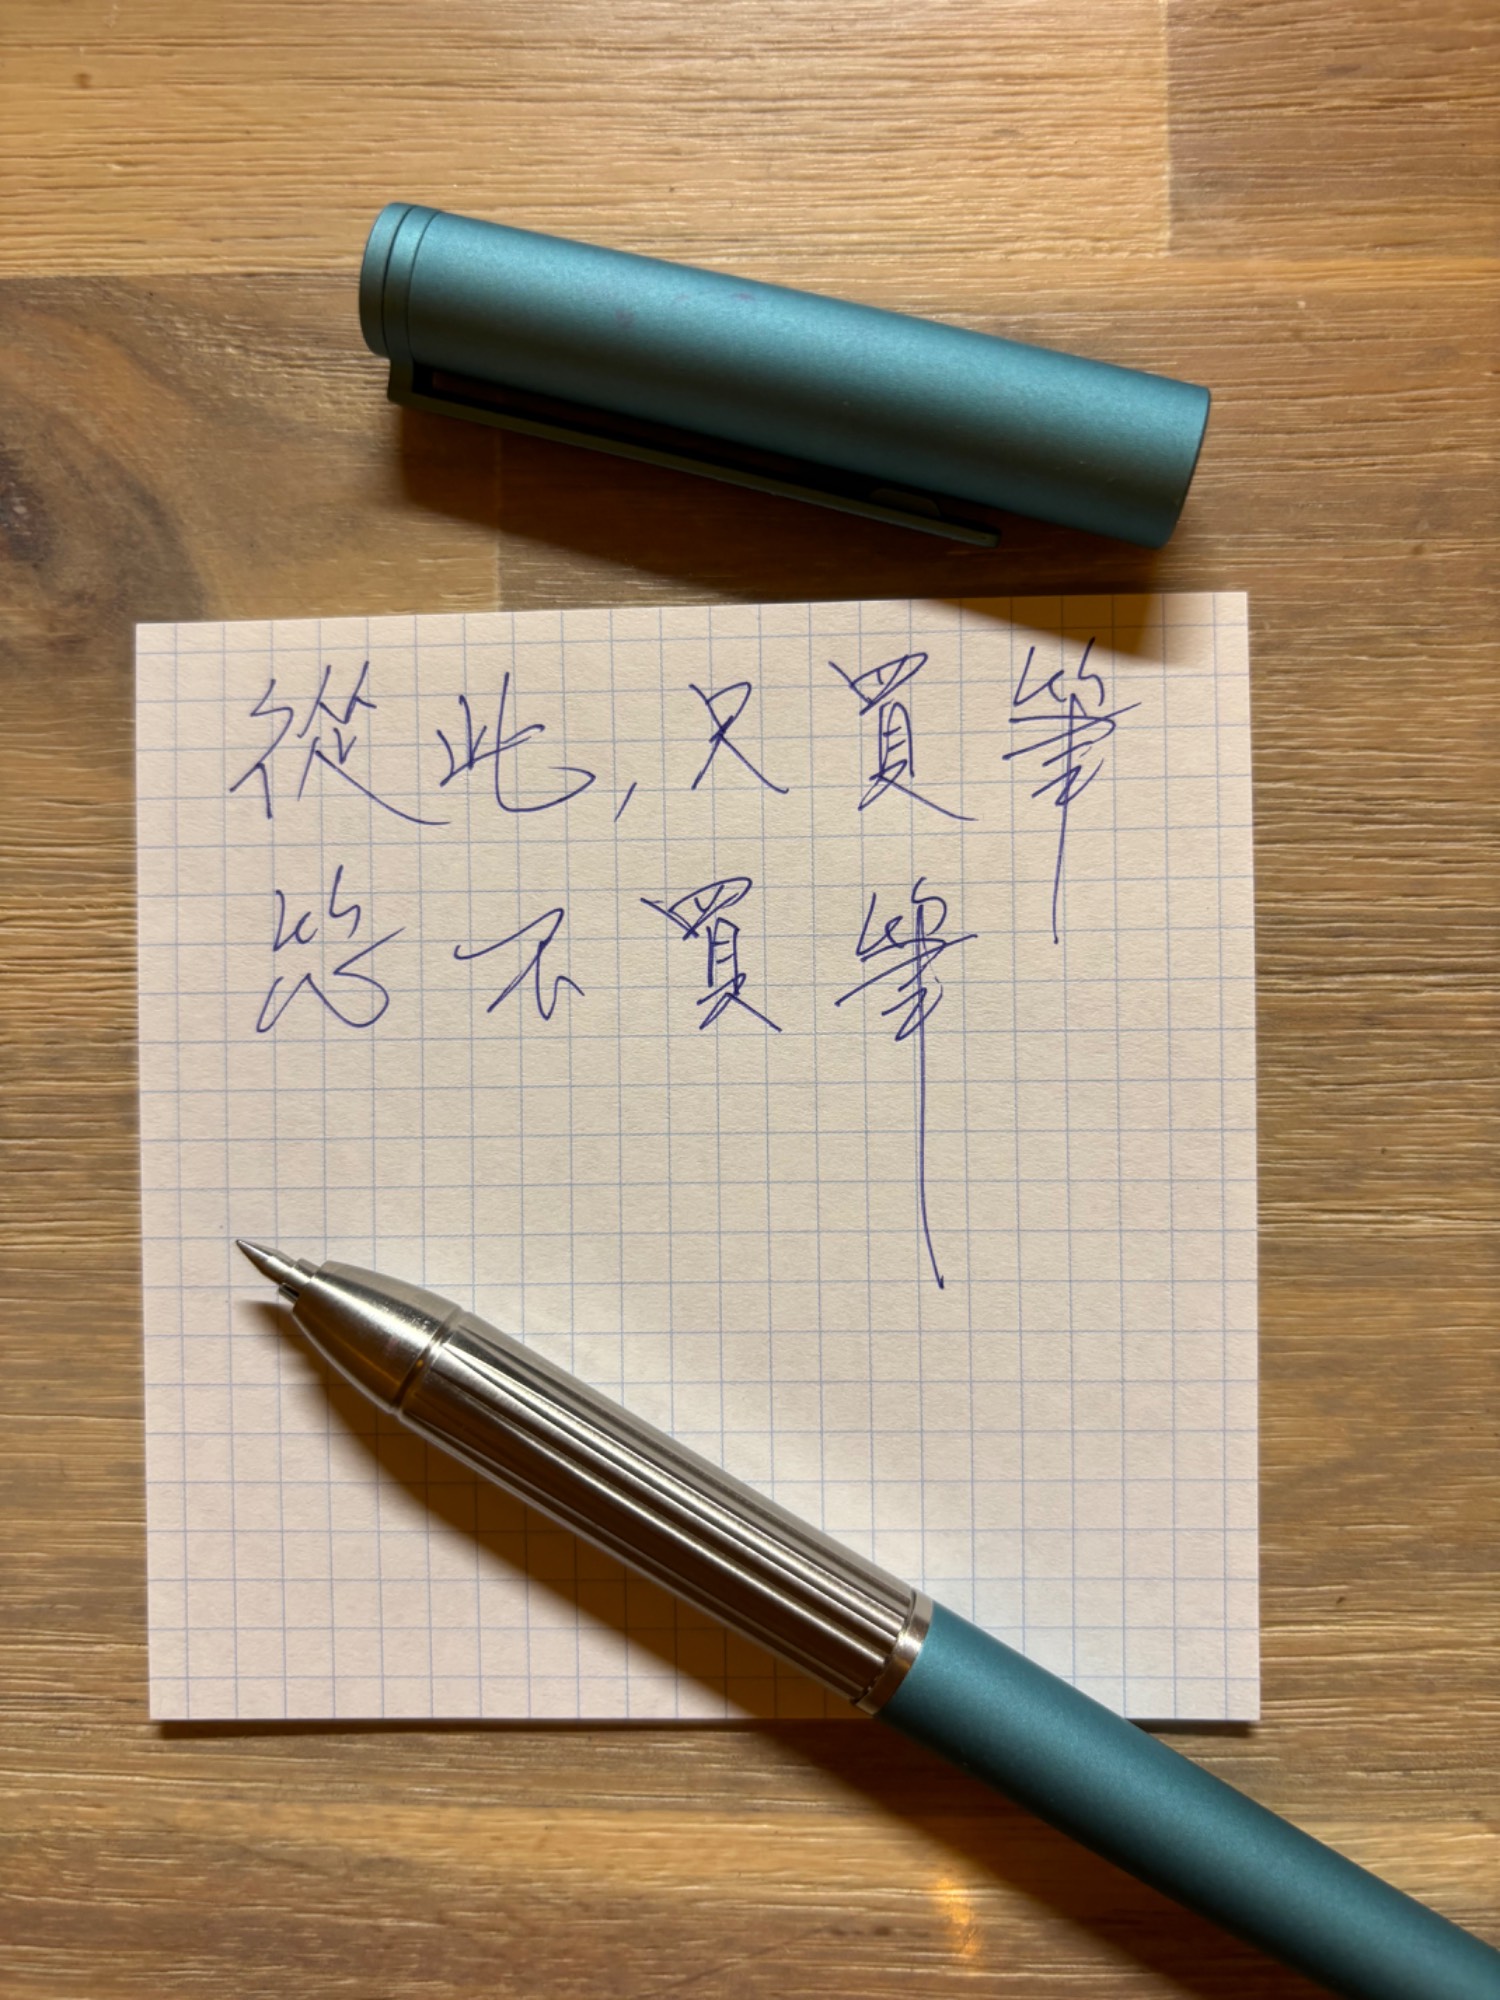 從此,只買筆
芯不買筆